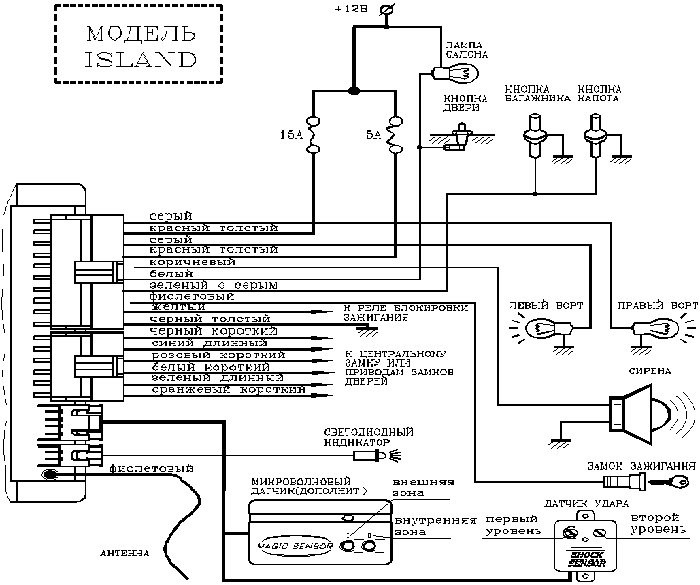 МОДЕЛЬ
ISLAND
+12В
ЛАМПА
САЛОНА
КНОПКА
ДВЕРИ
КНОПКА
БАГАЖНИКА
КНОПКА
КАПОТА
15А
5А
серый
красный толстый
серый
красный толстый
коричневый
белый
зеленый с серым
фислетовый
желтый
черный толстый
черный короткий
синий длинный
розовый короткий
белый короткий
зеленый длинный
оранжевый короткий
К РЕЛЕ БЛОКИРОВКИ
ЗАЖИГАНИЯ
К ЦЕНТРАЛЬНОМУ
ЗАМКУ ИЛИ
ПРИВОДАМ ЗАМКОВ
ДВЕРЕЙ
ЛЕВЫЙ БОРТ
ПРАВЫЙ БОРТ
СИРЕНА
СВЕТОДИОДНЫЙ
ИНДИКАТОР
ЗАМОК ЗАЖИГАНИЯ
фислетовый
АНТЕННА
МИКРОВОЛНОВЫЙ
ДАТЧИК(ДОПОЛНИТ)
внешняя
зона
внутренняя
зона
MAGIC SENSOR
ДАТЧИК УДАРА
первый
уровень
второй
уровень
SHOCK
SENSOR